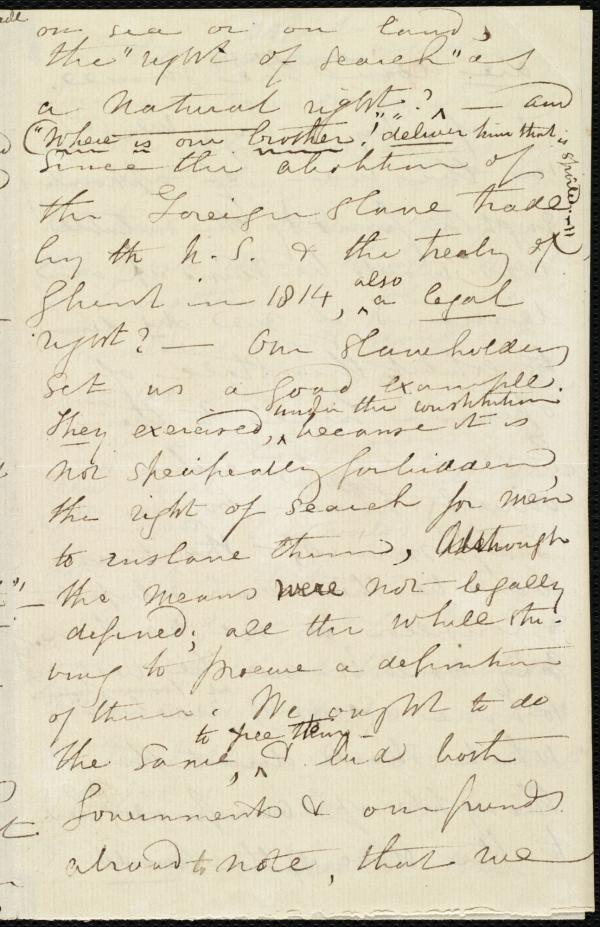 on sea or on land,
the "right of search" as
a natural right"? — and
("Where is our brother!" "deliver him that is spoiled"—)
Since the abolition of
the Foreign Slave trade
by the U. S. & the treaty of
Ghent in 1814, also a legal
right? — Our slaveholders
set us a good example.
under the constitution
They exercised, because it is
not specifically forbidden,
the right of search for men
to enslave them, Although
the means were not legally
defined; all the while stri-
ving to procure a definition
of them. We ought to do
to free them—
the same, & bid both
Governments & our friends
abroad to note, that we